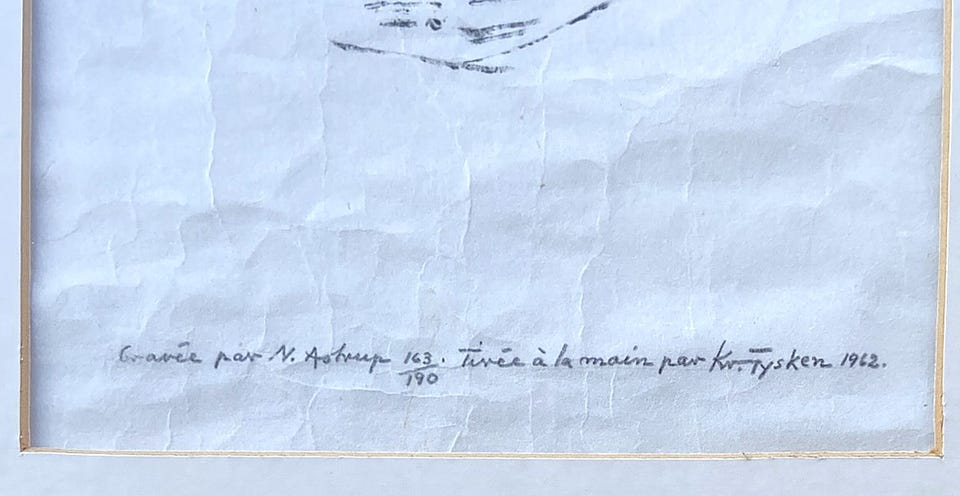 Gravée par N. Astrup 163/190. Tirée à la main par Kr. Tysken 1962.